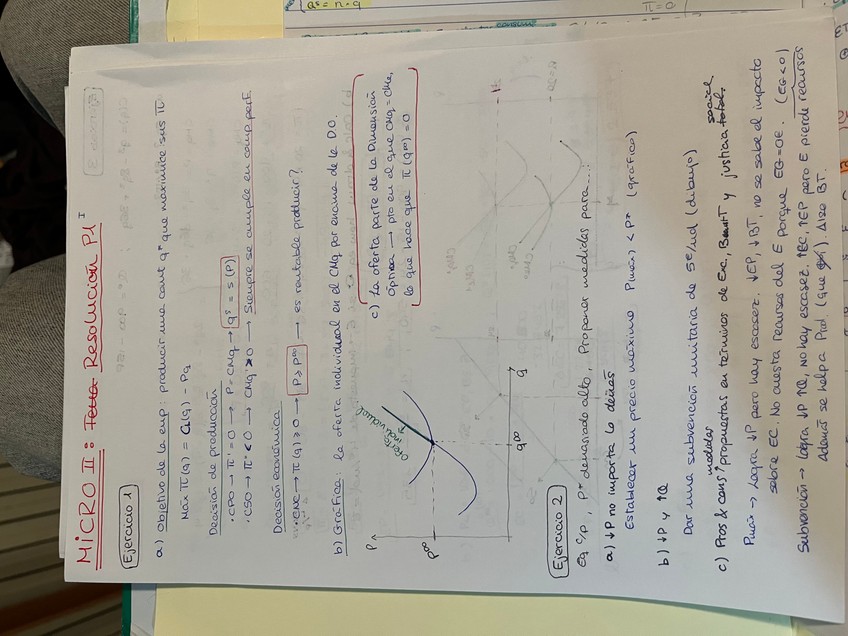 MICRO II: Resolución P1
Ejercicio 1
a) Objetivo de la emp: producir una cant q* que maximice sus Π
Máx Π(q) =
Decisión de producción
· CPO → Π' = 0 → P = CMg → q^s = s(P)
· CSO → Π'' < 0 → CMg' > 0 → Siempre se cumple en comp perf.
Decisión económica
· CNC → Π(q) ≥ 0 → P ≥ P^∞ → es rentable producir?
b) Gráfica: la oferta individual en el CMg por encima de la DO.
P
P^∞
oferta
individual
q^∞
q
c) La oferta parte de la Dimensión
Óptima → pto en el que CMg = CMe,
lo que hace que Π(q^∞) = 0
Ejercicio 2
Eq c/p, P* demasiado alto, Proponer medidas para...
a) ↓P no importa lo demás
Establecer un precio máximo P(máx) < P* (gráfico)
b) ↓P y ↑Q
Dar una subvención unitaria de 5€/ud (dibujo)
c) Pros & cons medidas propuestas en términos de Exc, BT y justicia social
Pmáx → Logra ↓P pero hay escasez. ↓EP, ↓BT, no se sabe el impacto
sobre EC. No cuesta recursos del E porque EG = 0€. (EG<0)
Subvención → Logra ↓P ↑Q, no hay escasez. ↑EC, ↑EP pero E pierde recursos
Además se help a Prod (que). Also BT.
Q^s = n · q
Π = 0
Ejercicio 3